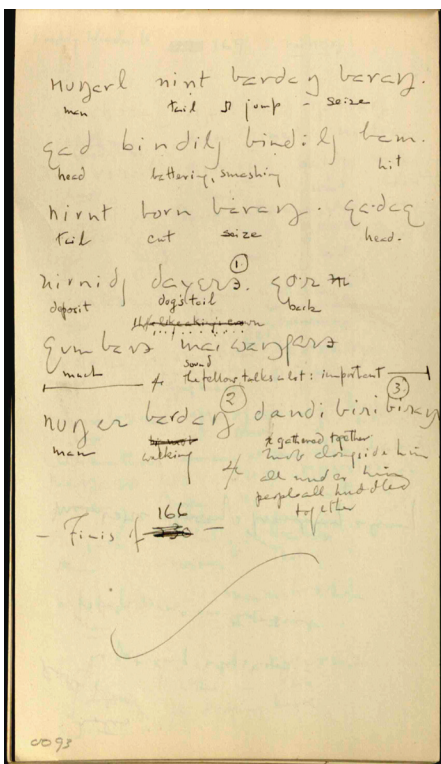 nuŋerl nint bardaŋ baraŋ.
man tail & jump - seize
qad bindilj bindilj bam.
head battering, smashing hit
nirnt born baraŋ. qa·daq
tail cut seize head.
nirnidj dayerz. ① qor
deposit dog's tail back
qum barz mai waŋparz
much sound
the fellow talks a lot: important
nuŋer bardaŋ ② dandi biri biraŋ ③
man walking & gathered together
mob alongside him
all under him
people all huddled
together
166
- Finis of 230 -
0093